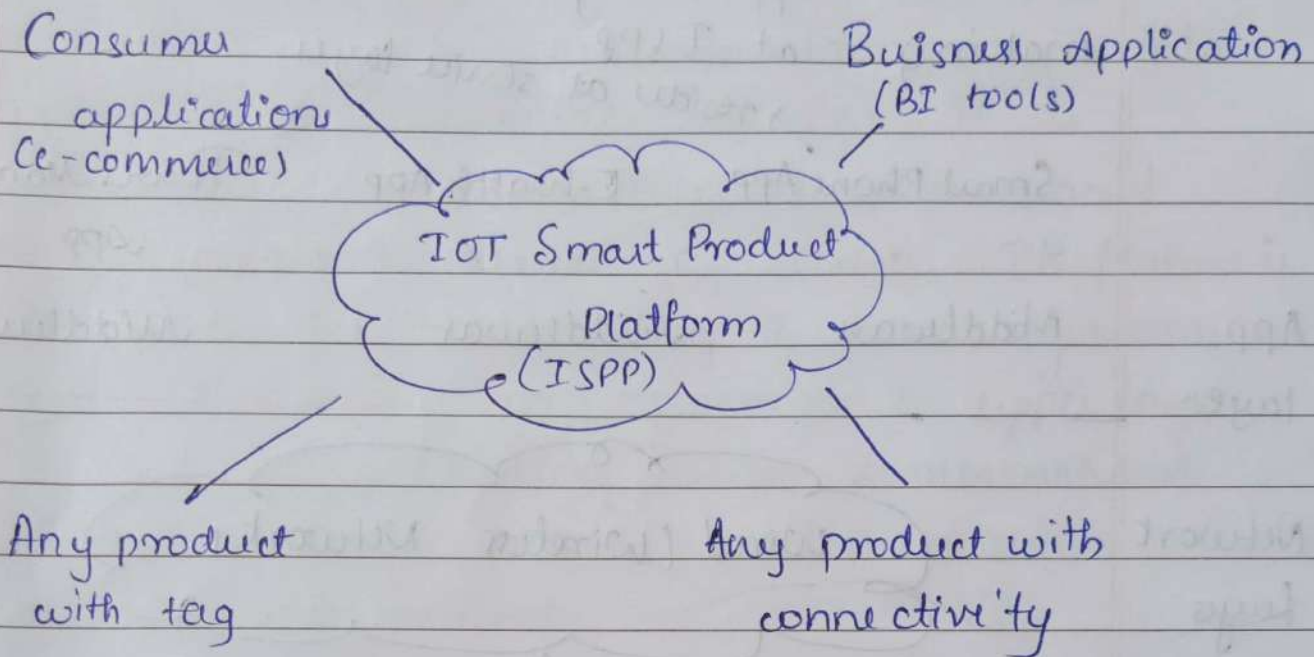 Consumer
application
(e-commerce)
Buisness Application
(BI tools)
IOT Smart Product
Platform
(ISPP)
Any product
with tag
Any product with
connectivity